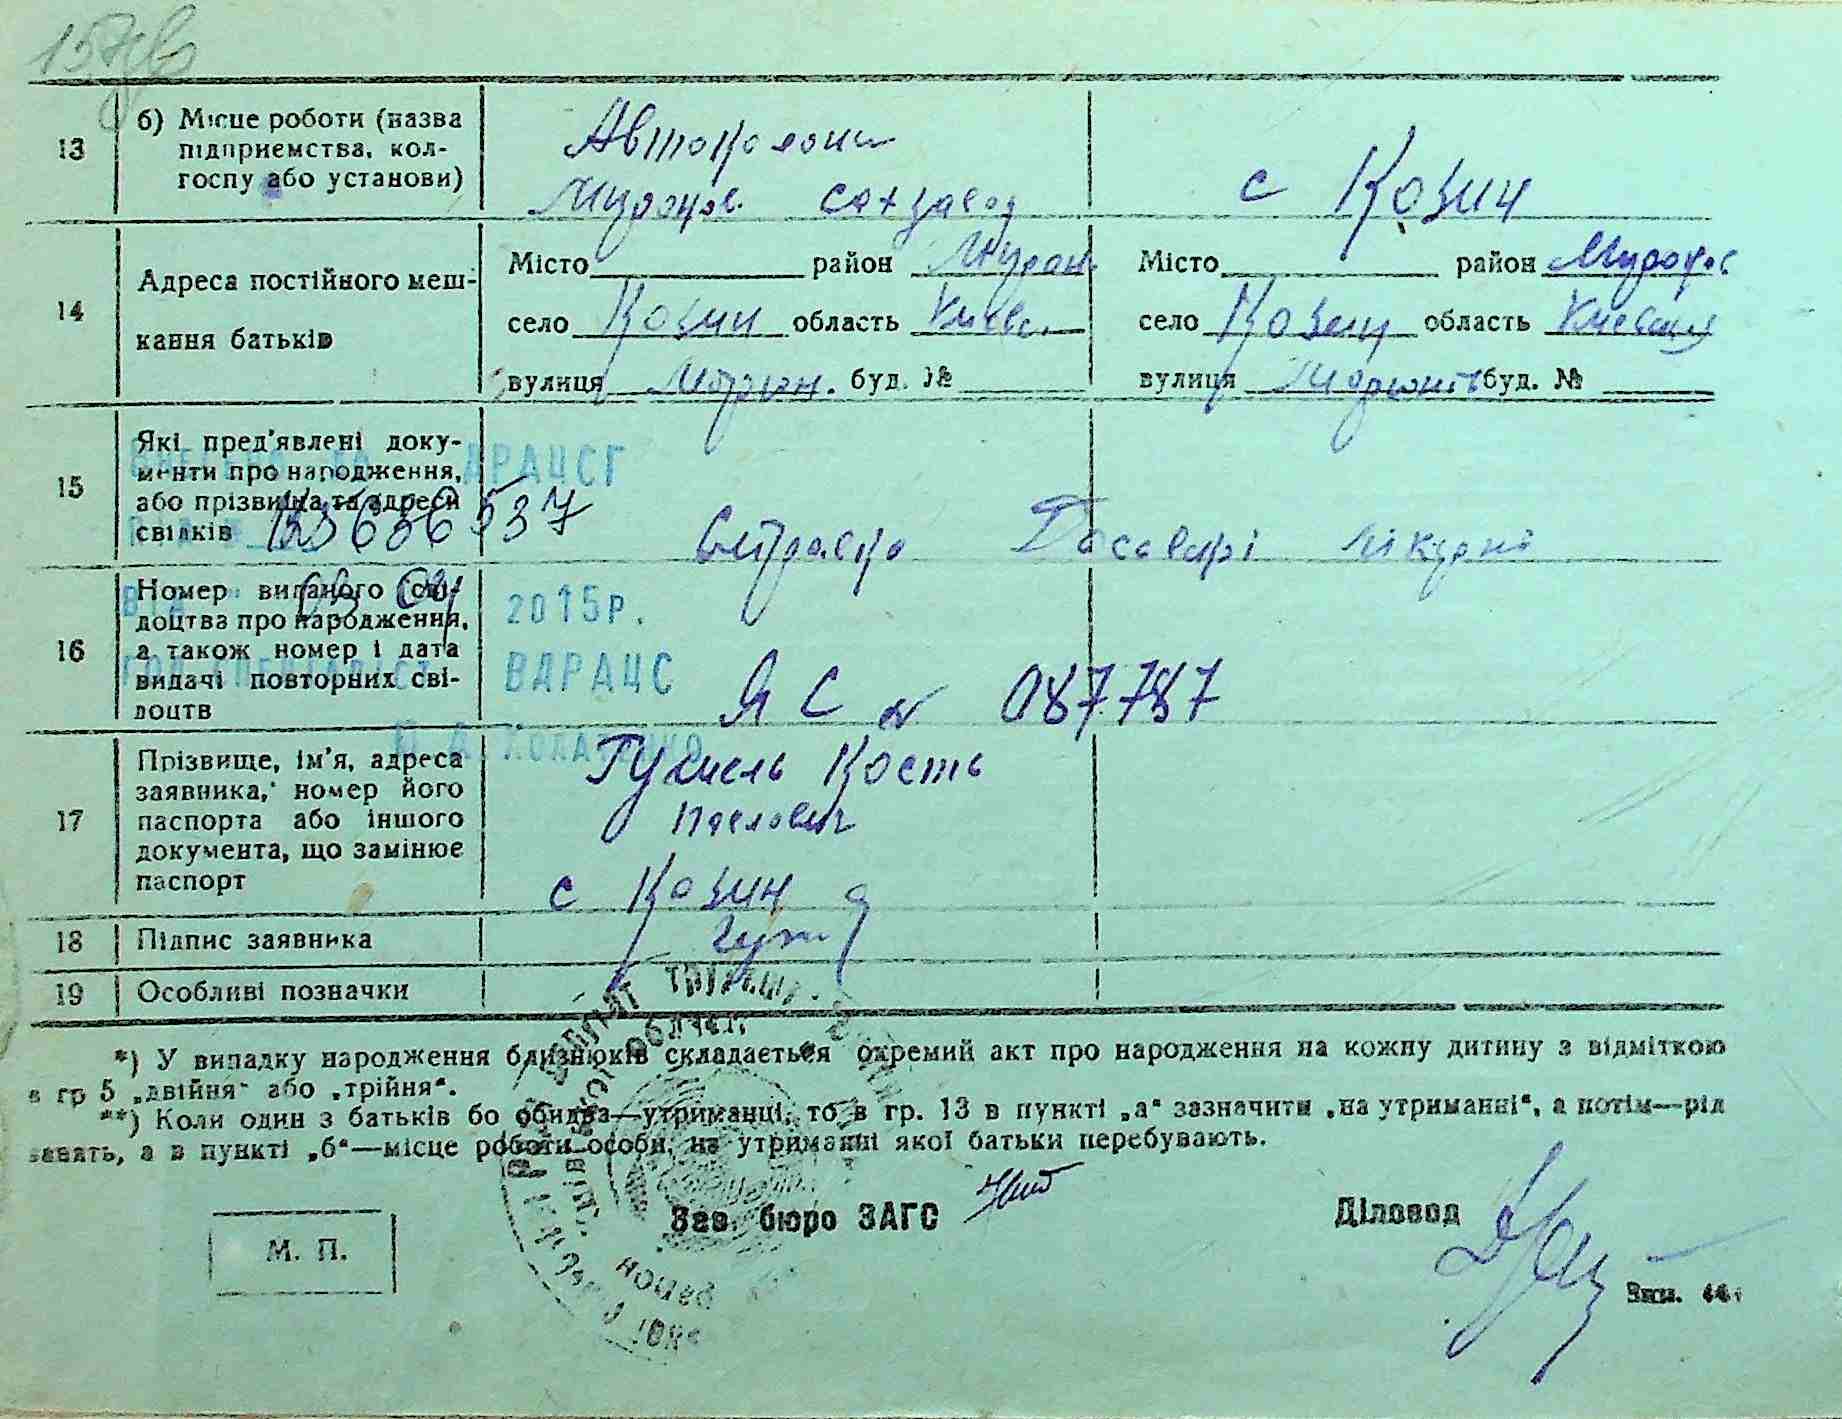 13
б) Місце роботи (назва
підприємства, кол-
госпу або установи)
Автоколони
Миронов. сахзавод
с Козин
14
Адреса постійного меш-
кання батьків
Місто район Мирон.
село Козин область Київс.
вулиця буд. №
Місто район Миронов
село Козин область Киевская
вулиця буд. №
15
Які пред'явлені доку-
менти про народження,
або прізвища та адреси
свідків
ДРАЦСГ
13636537
16
Номер виданого сві-
доцтва про народження,
а також номер і дата
видачі повторних сві-
доцтв
03 04 2015р.
ВДРАЦС
ЯС № 087787
17
Прізвище, ім'я, адреса
заявника, номер його
паспорта або іншого
документа, що замінює
паспорт
Кость
Павлович
с Козин
18
Підпис заявника
19
Особливі позначки
*) У випадку народження близнюків складається окремий акт про народження на кожну дитину з відміткою
в гр 5 „двійня“ або „трійня“.
**) Коли один з батьків бо обидва—утриманці, то в гр. 13 в пункті „а“ зазначити „на утриманні“, а потім—рід
занять, а в пункті „б“—місце роботи особи, на утриманні якої батьки перебувають.
Зав. бюро ЗАГС
Діловод
М. П.